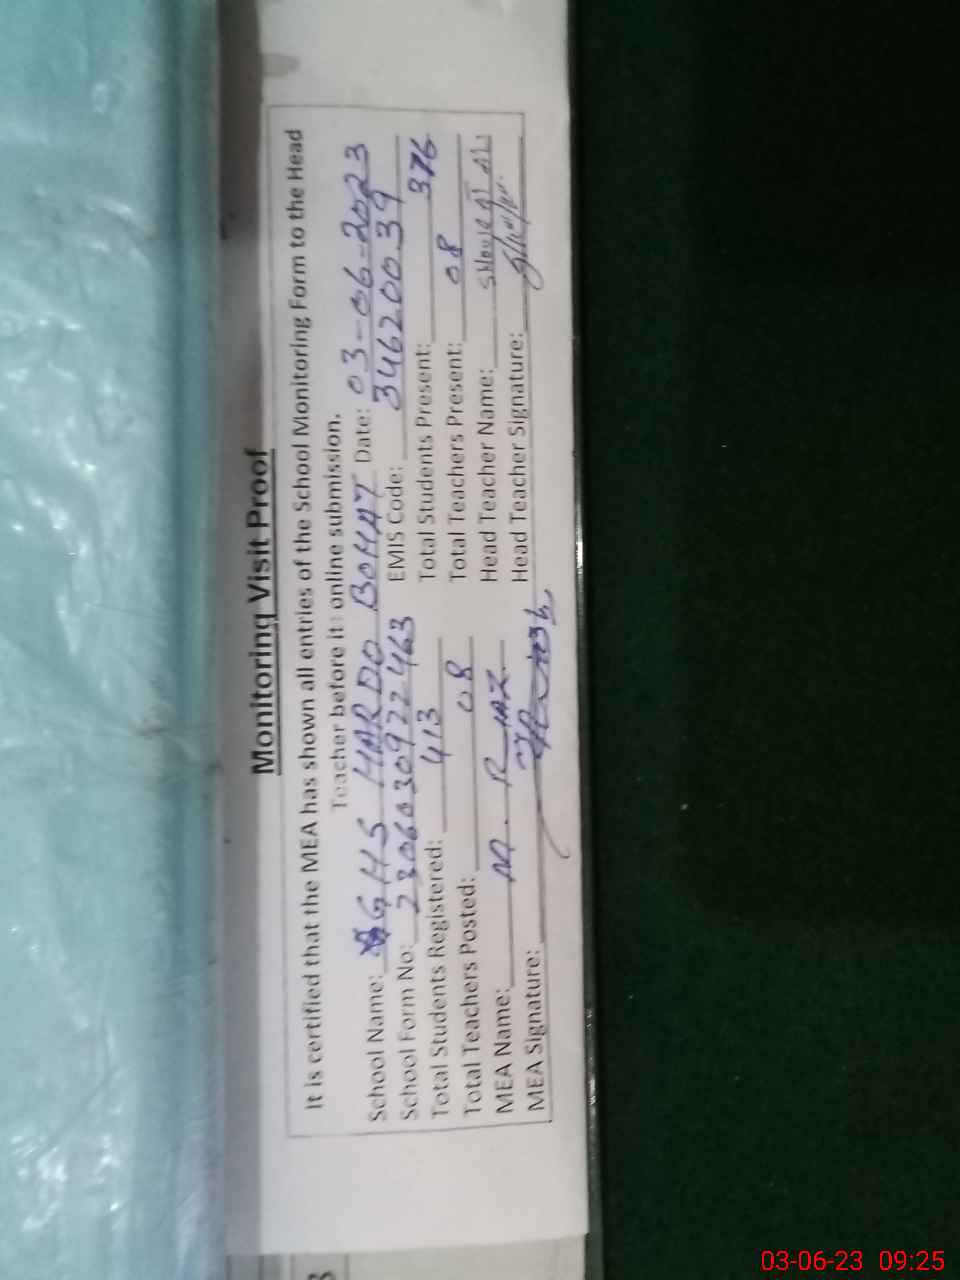 Monitoring Visit Proof
It is certified that the MEA has shown all entries of the School Monitoring Form to the Head
Teacher before its online submission.
School Name: GHS HARDO BOHAT Date: 03-06-2023
School Form No: 2306030922463 EMIS Code: 34620039
Total Students Registered: 413 Total Students Present: 376
Total Teachers Posted: 08 Total Teachers Present: 08
MEA Name: M. RIAZ Head Teacher Name:
MEA Signature: Head Teacher Signature:
03-06-23 09:25